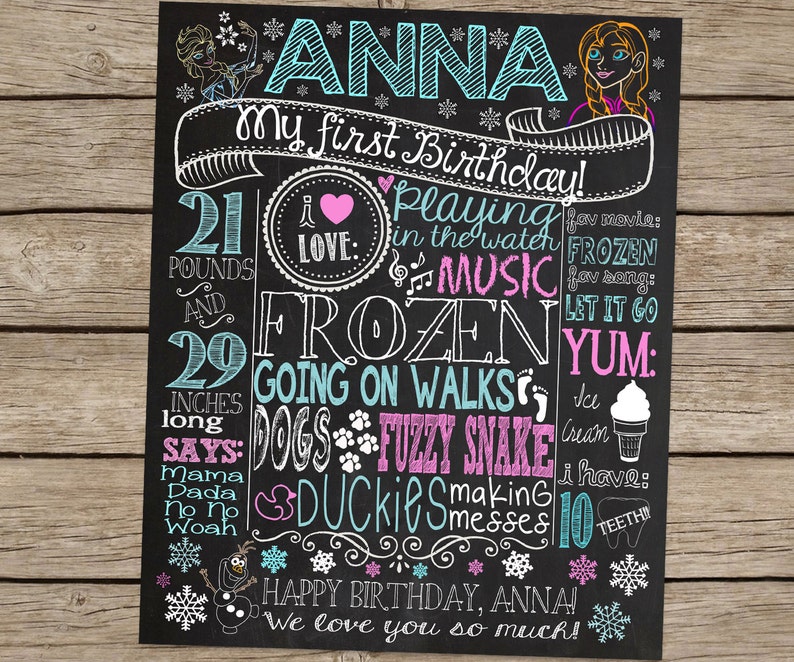 ANNA
My first Birthday!
21
POUNDS
AND
29
INCHES
long
SAYS:
Mama
Dada
No No
Woah
i
LOVE:
Playing
in the water
MUSIC
FROZEN
GOING ON WALKS
DOGS
FUZZY SNAKE
DUCKIES
making
messes
fav movie:
FROZEN
fav song:
LET IT GO
YUM:
Ice
Cream
i have:
10
TEETH!!
HAPPY BIRTHDAY, ANNA!
We love you so much!